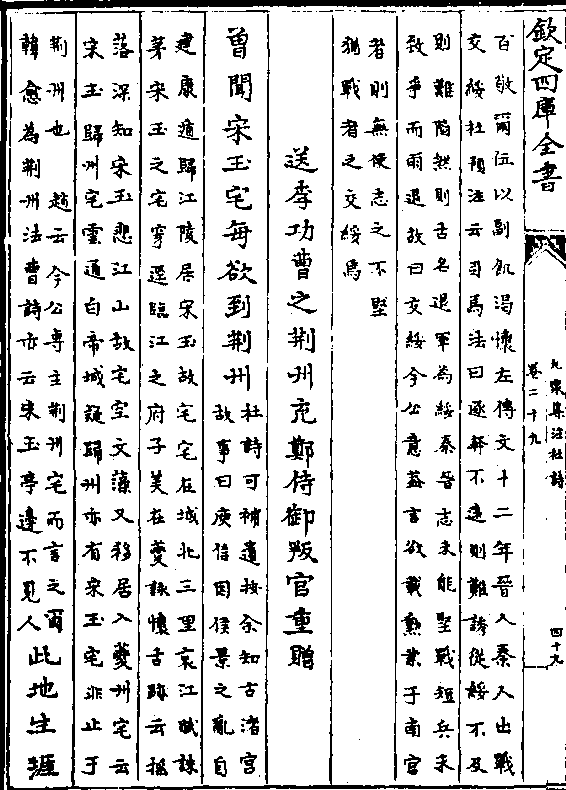 欽定四庫全書
九家集注杜詩
卷二十九
四十九
百敬爾位以副飢渴懷左傳文十二年晉人秦人出戰
交綏杜預注云司馬法曰逐奔不遠則難誘從綏不及
則難陷然則古名退軍為綏秦晉志未能堅戰短兵未
致爭而兩退故曰交綏今公意葢言欲載勲業于南宫
者則無使志之不堅
猶戰者之交綏焉
送李功曹之荆州充鄭侍御判官重贈
曽聞宋玉宅每欲到荆州
杜詩可補遺按余知古渚宫
故事曰庾信因侯景之亂自
建康遁歸江陵居宋玉故宅宅在城北三里哀江賦誅
茅宋玉之宅穿逕臨江之府子美在夔詠懷古跡云揺
落深知宋玉悲江山故宅空文藻又移居入夔州宅云
宋玉歸州宅雲通白帝城疑歸州亦有宋玉宅非止于
荆州也 趙云今公専主荆州宅而言之爾
韓愈為荆州法曹詩亦云宋玉亭邉不見人
此地生涯